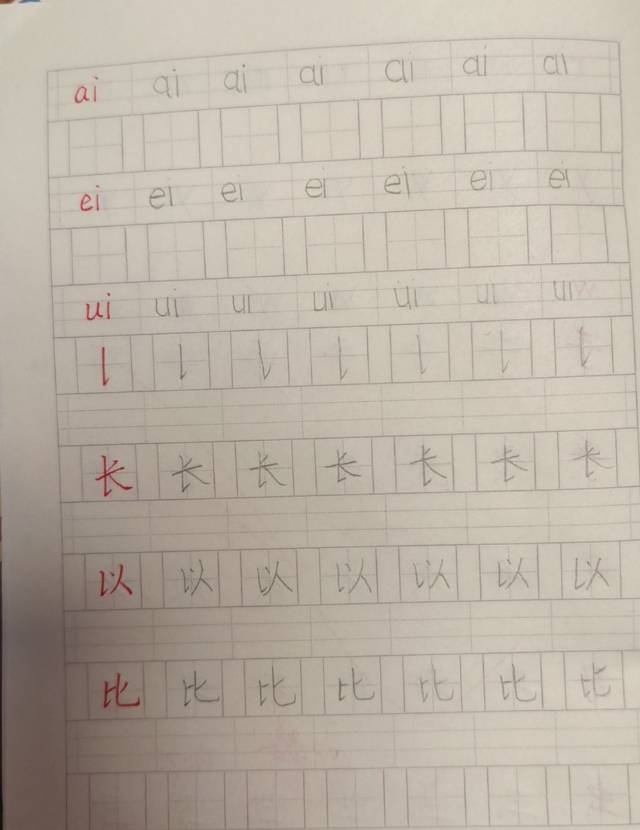 ai ai ai ai ai ai ai
ei ei ei ei ei ei ei
ui ui ui ui ui ui ui
长 长 长 长 长 长 长
以 以 以 以 以 以 以
比 比 比 比 比 比 比